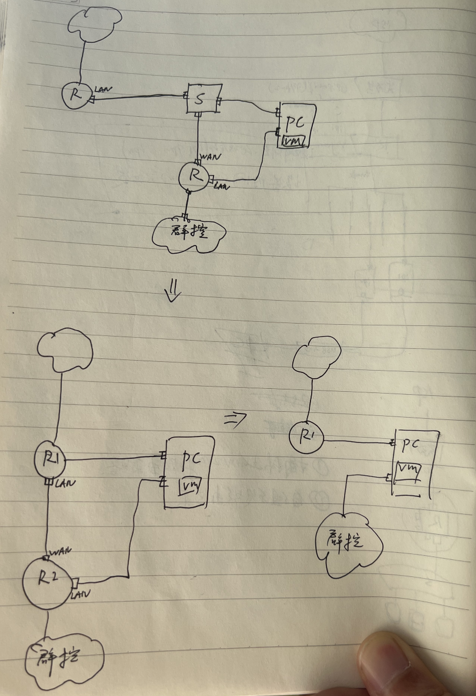 R LAN
S
PC
vm
WAN
R LAN
群控
⇓
R1
LAN
PC
vm
WAN
R2
LAN
群控
⇒
R1
PC
vm
群控